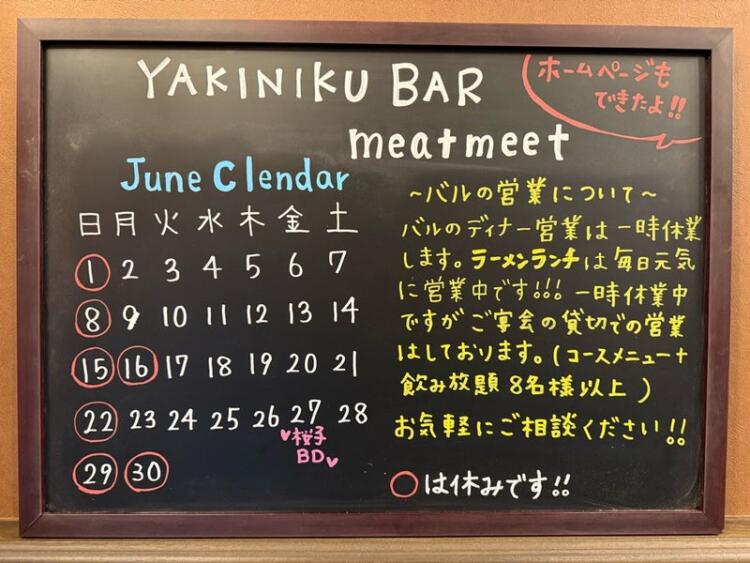 YAKINIKU BAR
meatmeet
ホームページも
できたよ!!
June Clendar
日 月 火 水 木 金 土
1 2 3 4 5 6 7
8 9 10 11 12 13 14
15 16 17 18 19 20 21
22 23 24 25 26 27 28
桜子
BD
29 30
～バルの営業について～
バルのディナー営業は一時休業
します。ラーメンランチは毎日元気
に営業中です!!! 一時休業中
ですがご宴会の貸切での営業
はしております。(コースメニュー+
飲み放題 8名様以上 )
お気軽にご相談ください!!
○は休みです!!